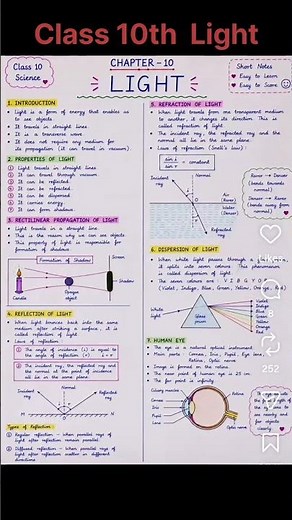 Class 10th Light
Class 10
Science
CHAPTER - 10
LIGHT
Short Notes
Easy to Learn
Easy to Score
1. INTRODUCTION
Light is a form of energy that enables us
to see objects.
It travels in straight lines
It is a transverse wave
It does not require any medium for
its propagation (it can travel in vacuum).
2. PROPERTIES OF LIGHT
Light travels in straight lines
It can travel through vacuum
It can be reflected
It can be refracted
It can be dispersed
It carries energy
It can form shadows
3. RECTILINEAR PROPAGATION OF LIGHT
Light travels in a straight line.
This is the reason why we can see objects
This property of light is responsible for
formation of shadows.
Formation of Shadows
Screen
Shadow
Candle
Opaque
object
4. REFLECTION OF LIGHT
When light bounces back into the same
medium after striking a surface, it is
called reflection of light.
Laws of reflection:
1 The angle of incidence (i) is equal to
the angle of reflection (r). i = r
2 The incident ray, the reflected ray and
the normal at the point of incidence
all lie in the same plane.
Incident
ray
Normal
Reflected
ray
i
r
M
O
N
Types of Reflection:
1 Regular reflection – when parallel rays of
light after reflection remain parallel
2 Diffused reflection – when parallel rays of
light after reflection scatter in different
directions
5. REFRACTION OF LIGHT
When light travels from one transparent medium
to another, it changes its direction. This is
called refraction of light.
The incident ray, the refracted ray and the
normal all lie in the same plane.
Laws of refraction (Snell's law):
sin i
sin r
= constant
Incident
ray
Normal
Air
(Rarer)
Water
(Denser)
Refracted
ray
Rarer → Denser
(bends towards
normal)
Denser → Rarer
(bends away from
normal)
6. DISPERSION OF LIGHT
When white light passes through a
it splits into seven colours. This phenomenon
is called dispersion of light.
The seven colours are: V I B G Y O R
(Violet, Indigo, Blue, Green, Yellow, Orange, Red)
White
light
Glass
prism
Violet
Indigo
Blue
Green
Yellow
Orange
Red
7. HUMAN EYE
The eye is a natural optical instrument.
Main parts: Cornea, Iris, Pupil, Eye lens,
Retina, Optic nerve
Image is formed on the retina.
The near point of human eye is 25 cm.
The far point is infinity
Ciliary muscles
Cornea
Iris
Pupil
Lens
Retina
Optic
nerve
and far
objects
clearly.
8
252